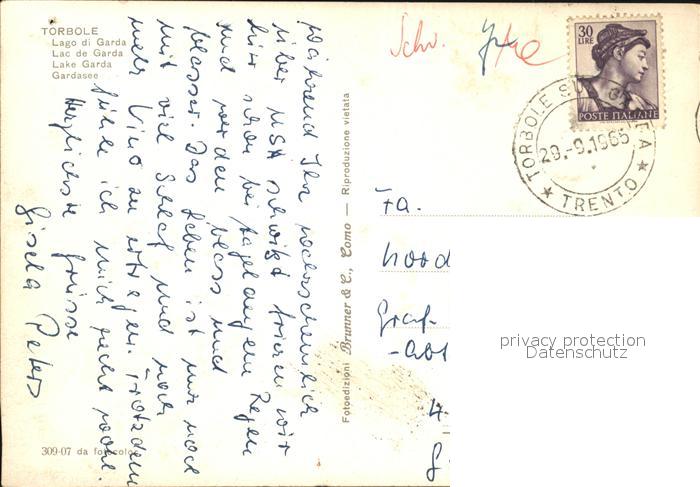 TORBOLE
Lago di Garda
Lac de Garda
Lake Garda
Gardasee
Während Ihr wahrscheinlich
über USA schwitzt frieren wir
hier schon bei tagelangem Regen
und werden blass und
blasser. Das Leben ist nur noch
mit viel Schlaf und noch
mehr Vino zu ertragen. Trotzdem
fühle ich mich recht wohl.
Herzlichste Grüsse
Gisela Peters
309-07 da fotocolor
Fotoedizioni Brunner & C., Como — Riproduzione vietata
30
LIRE
POSTE ITALIANE
TORBOLE SUL GARDA
29.-9.1965
TRENTO
Fa.
Graf-
privacy protection
Datenschutz